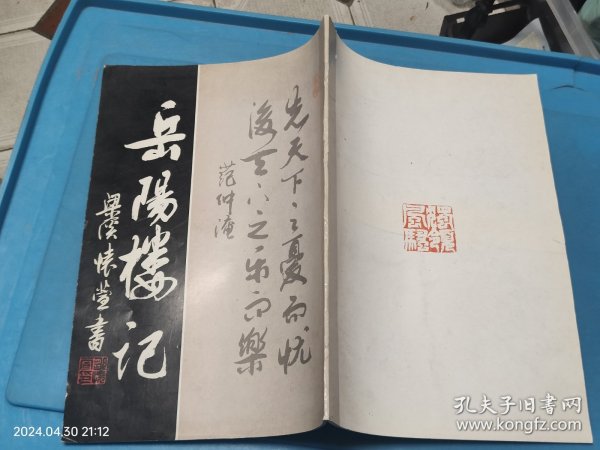 岳陽楼记
書
先天下之憂而忧
後天下之乐而樂
范仲淹
2024.04.30 21:12
孔夫子旧书网
www.kongfz.com